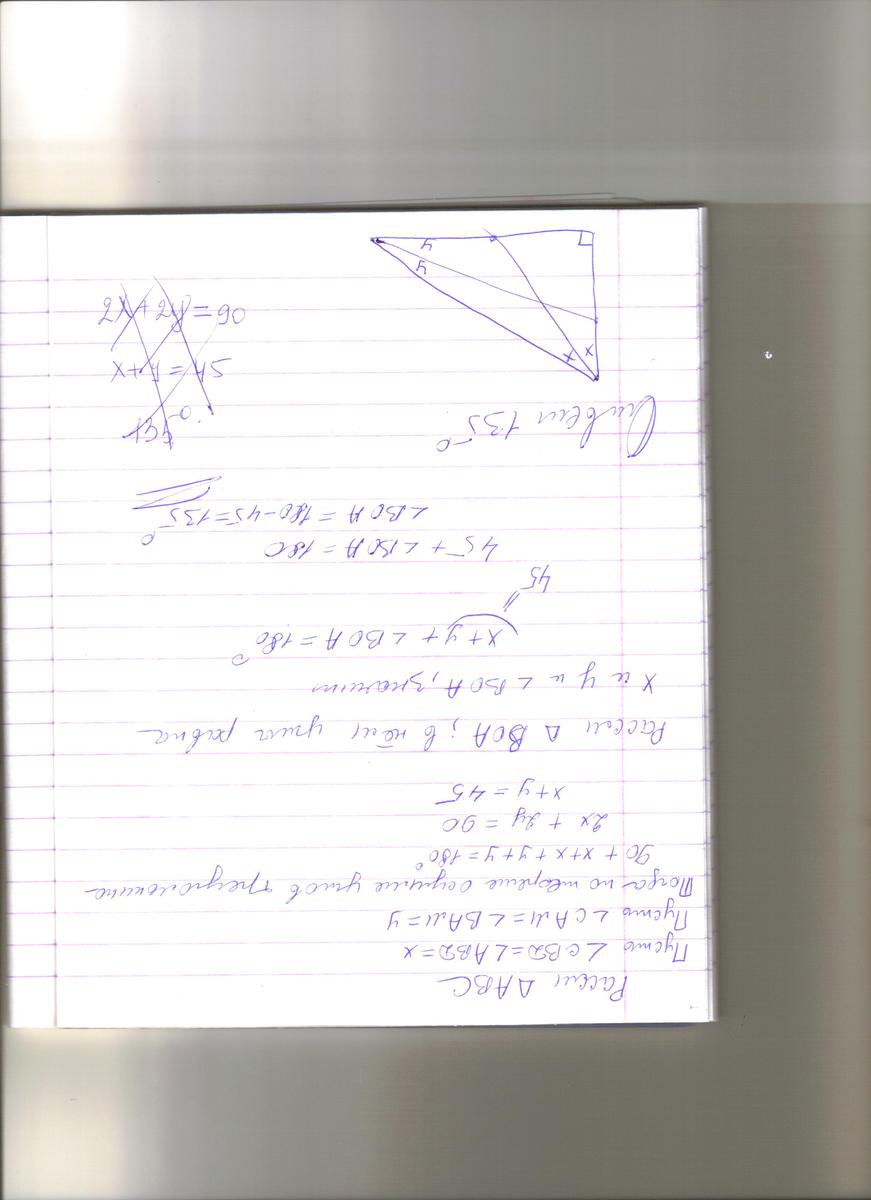 Рассм △ABC
Пусть ∠CBD=∠ABD=x
Пусть ∠CAM=∠BAM=y
Тогда по теореме о сумме углов треугольника
90 + x+x+y+y=180°
2x + 2y = 90
x+y = 45
Рассм △ BOA; в нём углы равны
x и y и ∠BOA, значит
x+y + ∠BOA=180°
45
45 + ∠BOA = 180
∠BOA = 180-45=135°
Ответ 135°
x x
y
y